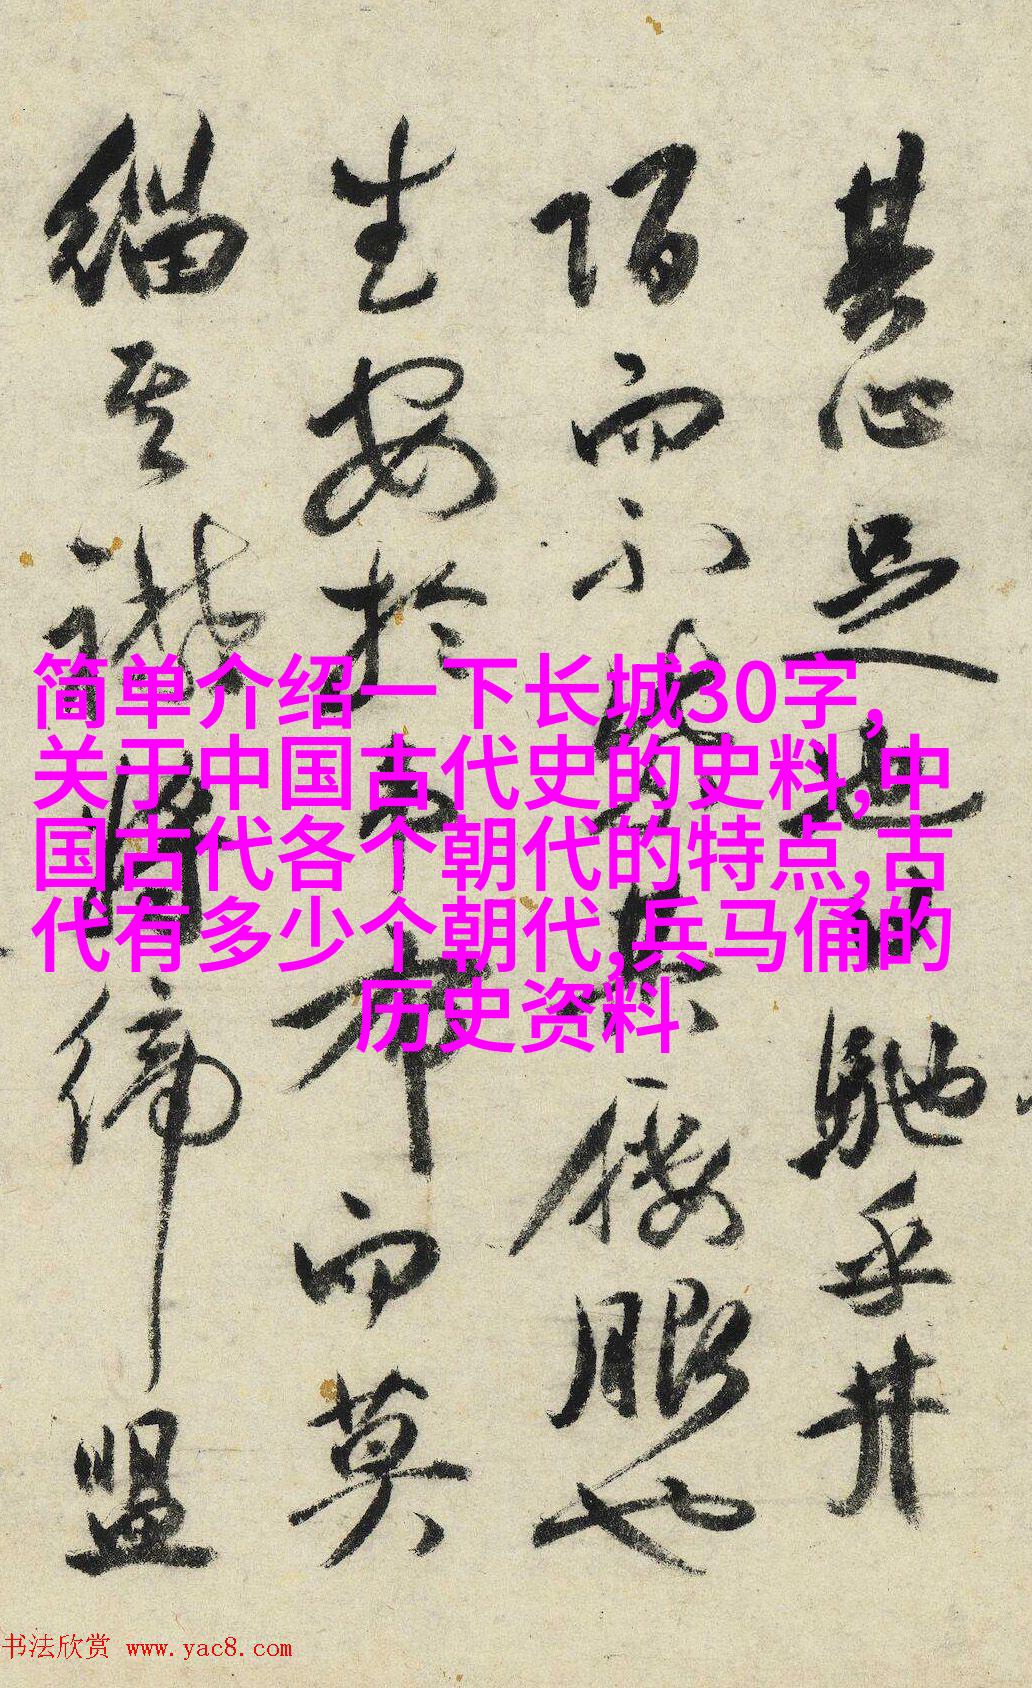 其心足馳乎井
陌而不服也
生安於布而莫
其締盟
简单介绍一下长城30字,
关于中国古代史的史料,中
国古代各个朝代的特点,古
代有多少个朝代,兵马俑的
历史资料
书法欣赏 www.yac8.com